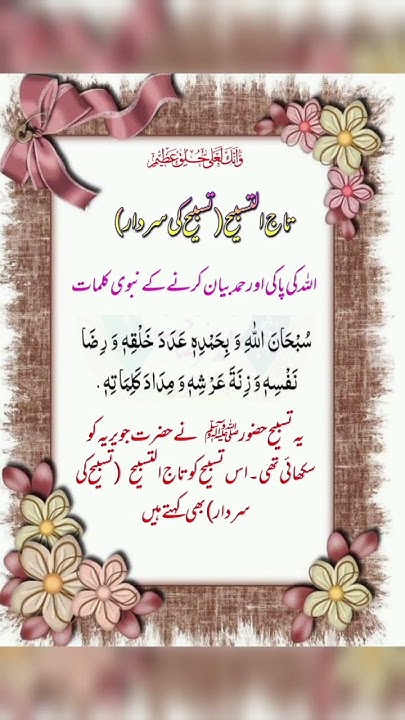 وَإِنَّكَ لَعَلَىٰ خُلُقٍ عَظِيمٍ
تاج التسبیح (تسبیح کی سردار)
اللہ کی پاکی اور حمد بیان کرنے کے نبوی کلمات
سُبْحَانَ اللهِ وَ بِحَمْدِهٖ عَدَدَ خَلْقِهٖ وَ رِضَا
نَفْسِهٖ وَ زِنَةَ عَرْشِهٖ وَ مِدَادَ كَلِمَاتِهٖ .
یہ تسبیح حضور ﷺ نے حضرت جویریہ کو
سکھائی تھی۔ اس تسبیح کو تاج التسبیح (تسبیح کی
سردار) بھی کہتے ہیں